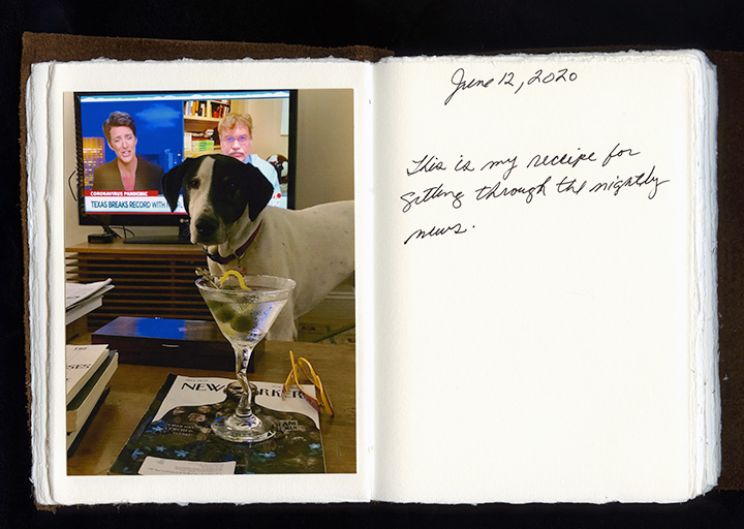 CORONAVIRUS PANDEMIC
TEXAS BREAKS RECORD WITH
NEW RKER
June 12, 2020
This is my receipe for
getting through the nightly
news.